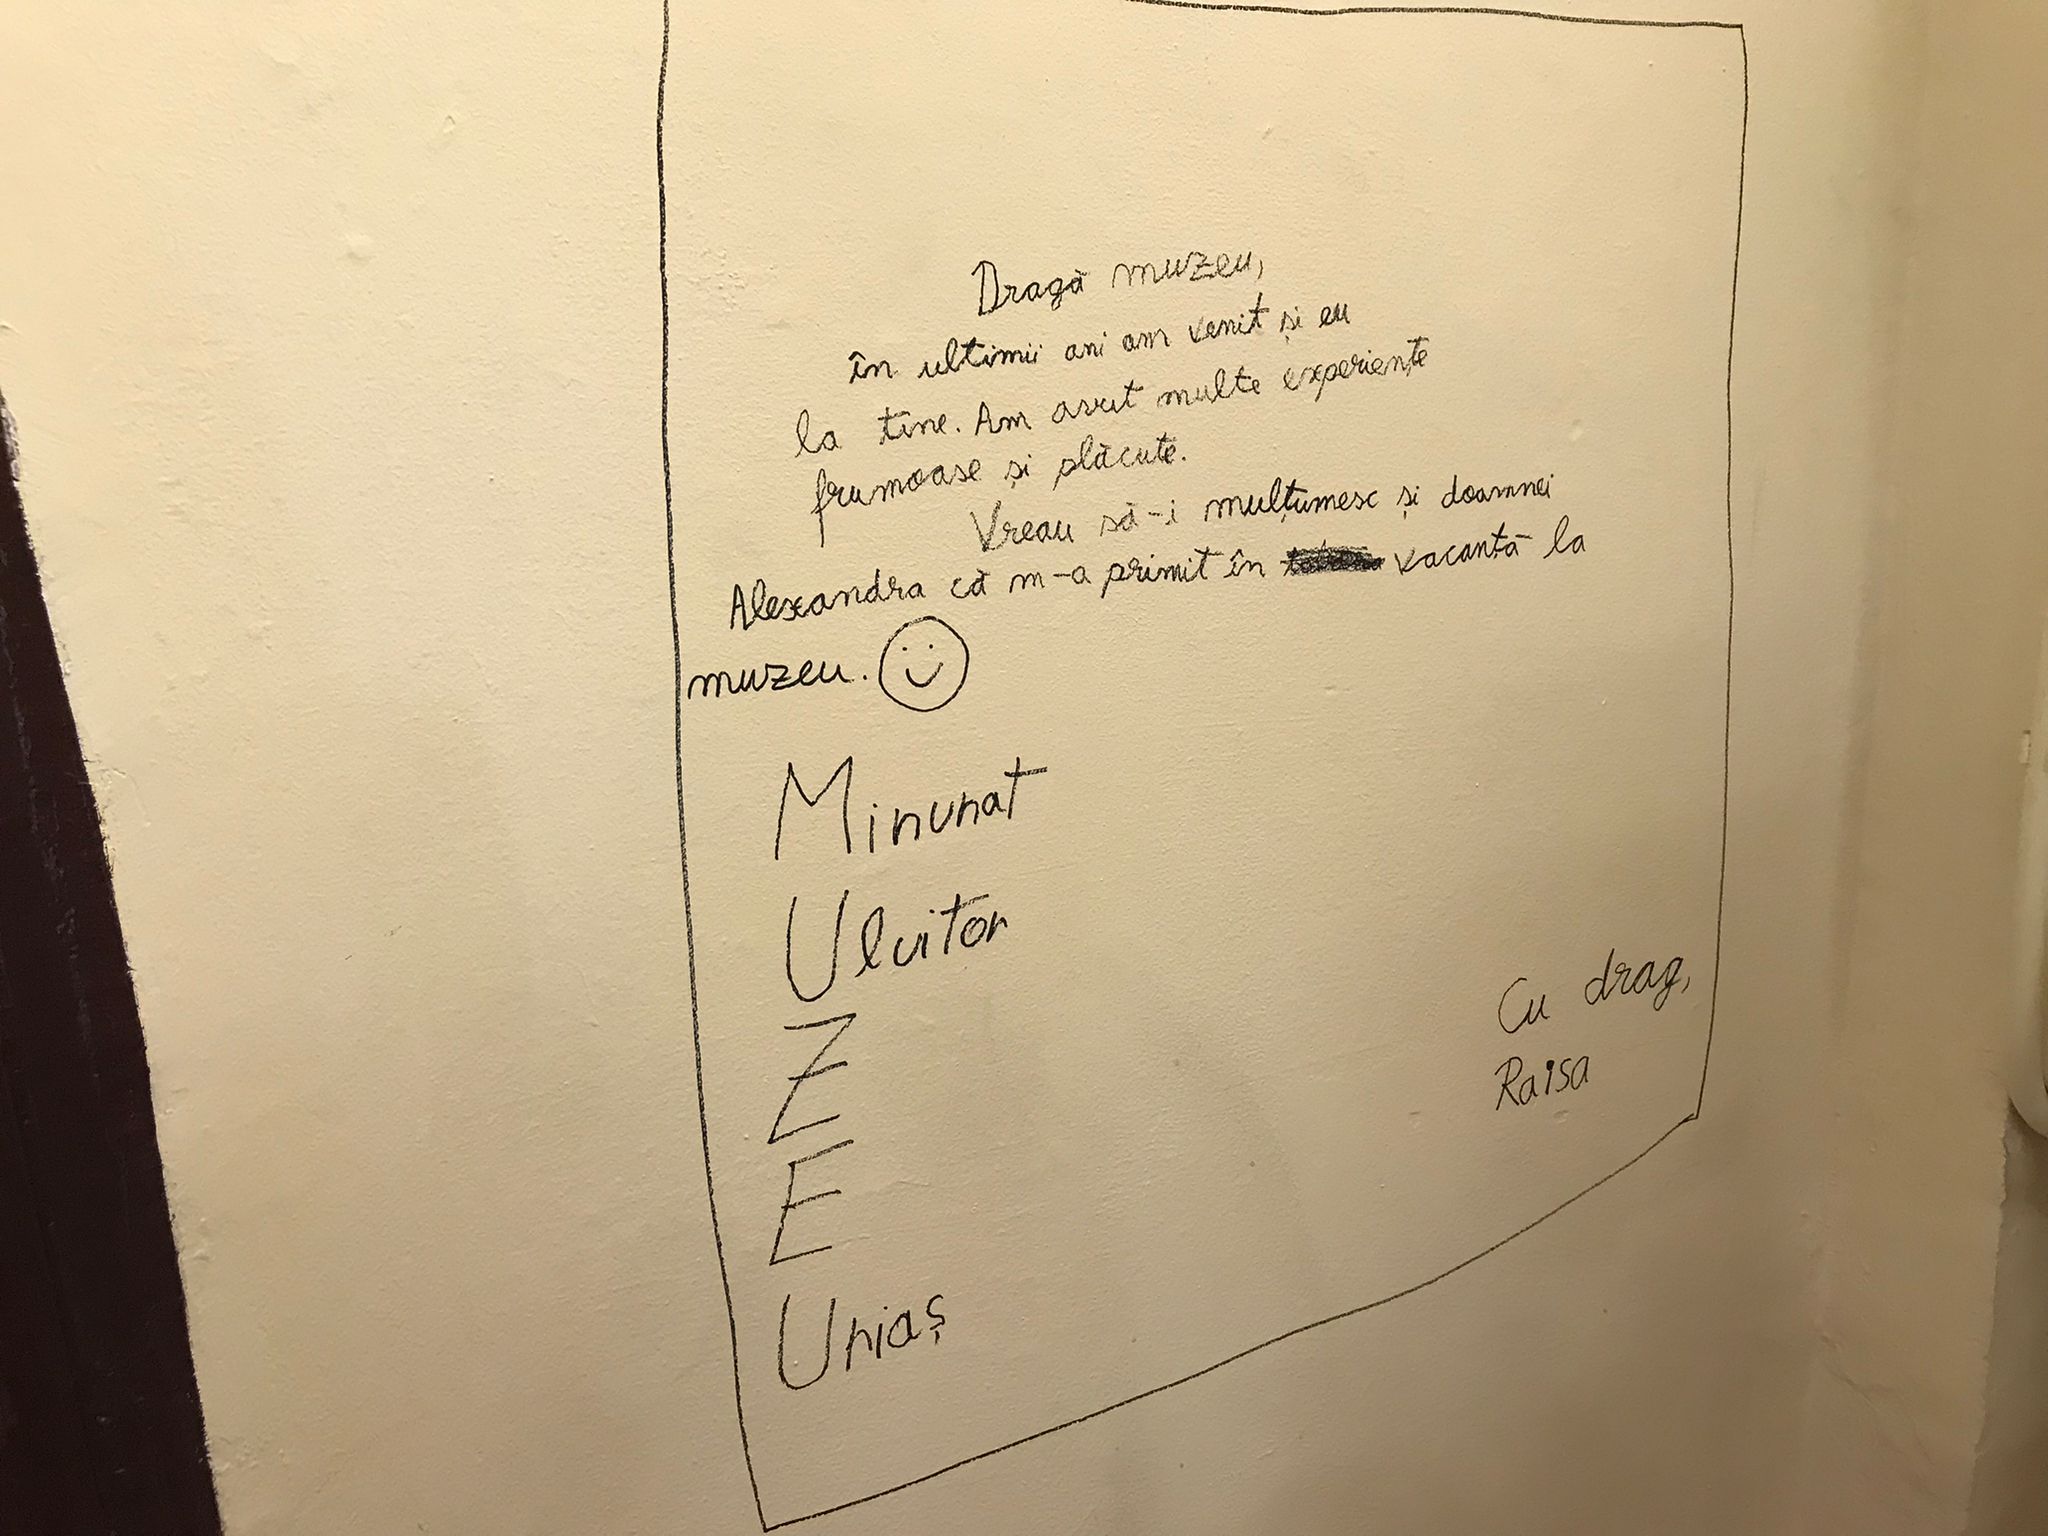 Dragă muzeu,
în ultimii ani am venit și eu
la tine. Am avut multe experiențe
frumoase și plăcute.
Vreau să-i mulțumesc și doamnei
Alexandra că m-a primit în vacanță la
muzeu.
Minunat
Uluitor
Z
E
Uriaș
Cu drag,
Raisa